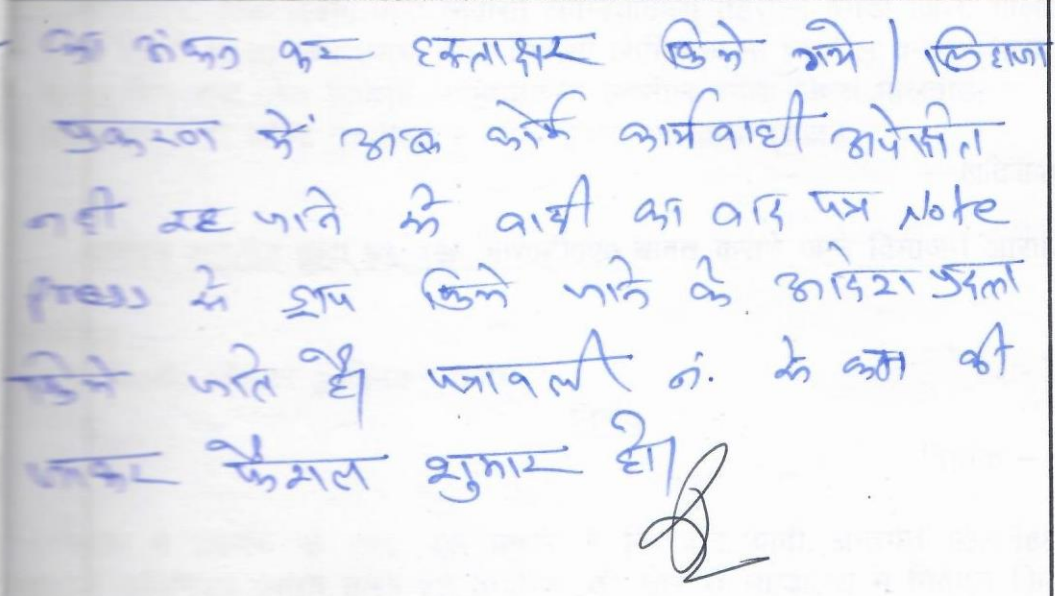 का अंकन कर हस्ताक्षर किये गये। लिहाजा
प्रकरण में अब कोई कार्यवाही अपेक्षित
नही रह जाने से वादी का वाद पत्र Note
press में ड्राप किये जाने के आदेश प्रदत्त
किये जाते है। पत्रावली नं. से कम की
जाकर फैसल शुमार हो।